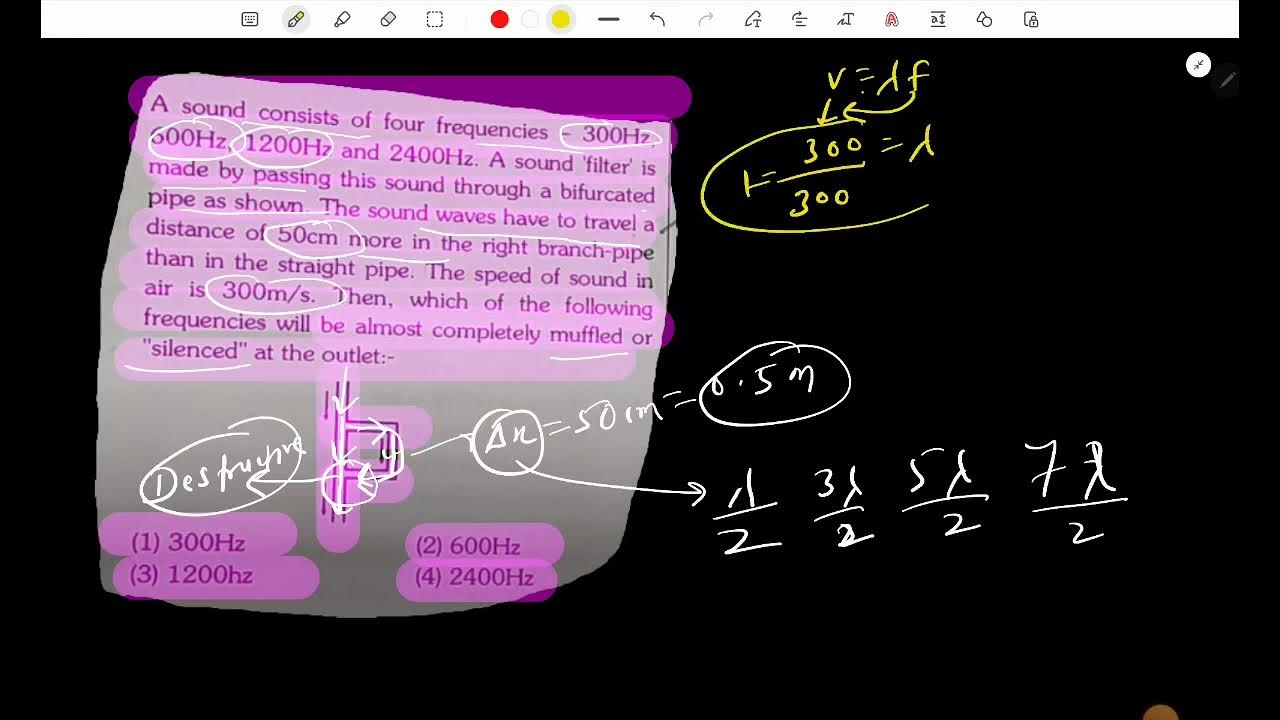 A sound consists of four frequencies - 300Hz,
600Hz, 1200Hz and 2400Hz. A sound 'filter' is
made by passing this sound through a bifurcated
pipe as shown. The sound waves have to travel a
distance of 50cm more in the right branch-pipe
than in the straight pipe. The speed of sound in
air is 300m/s. Then, which of the following
frequencies will be almost completely muffled or
"silenced" at the outlet:-
(1) 300Hz
(2) 600Hz
(3) 1200hz
(4) 2400Hz
v = λf
1 = 300/300 = λ
Destructive
Δx = 50cm = 0.5m
λ/2 3λ/2 5λ/2 7λ/2